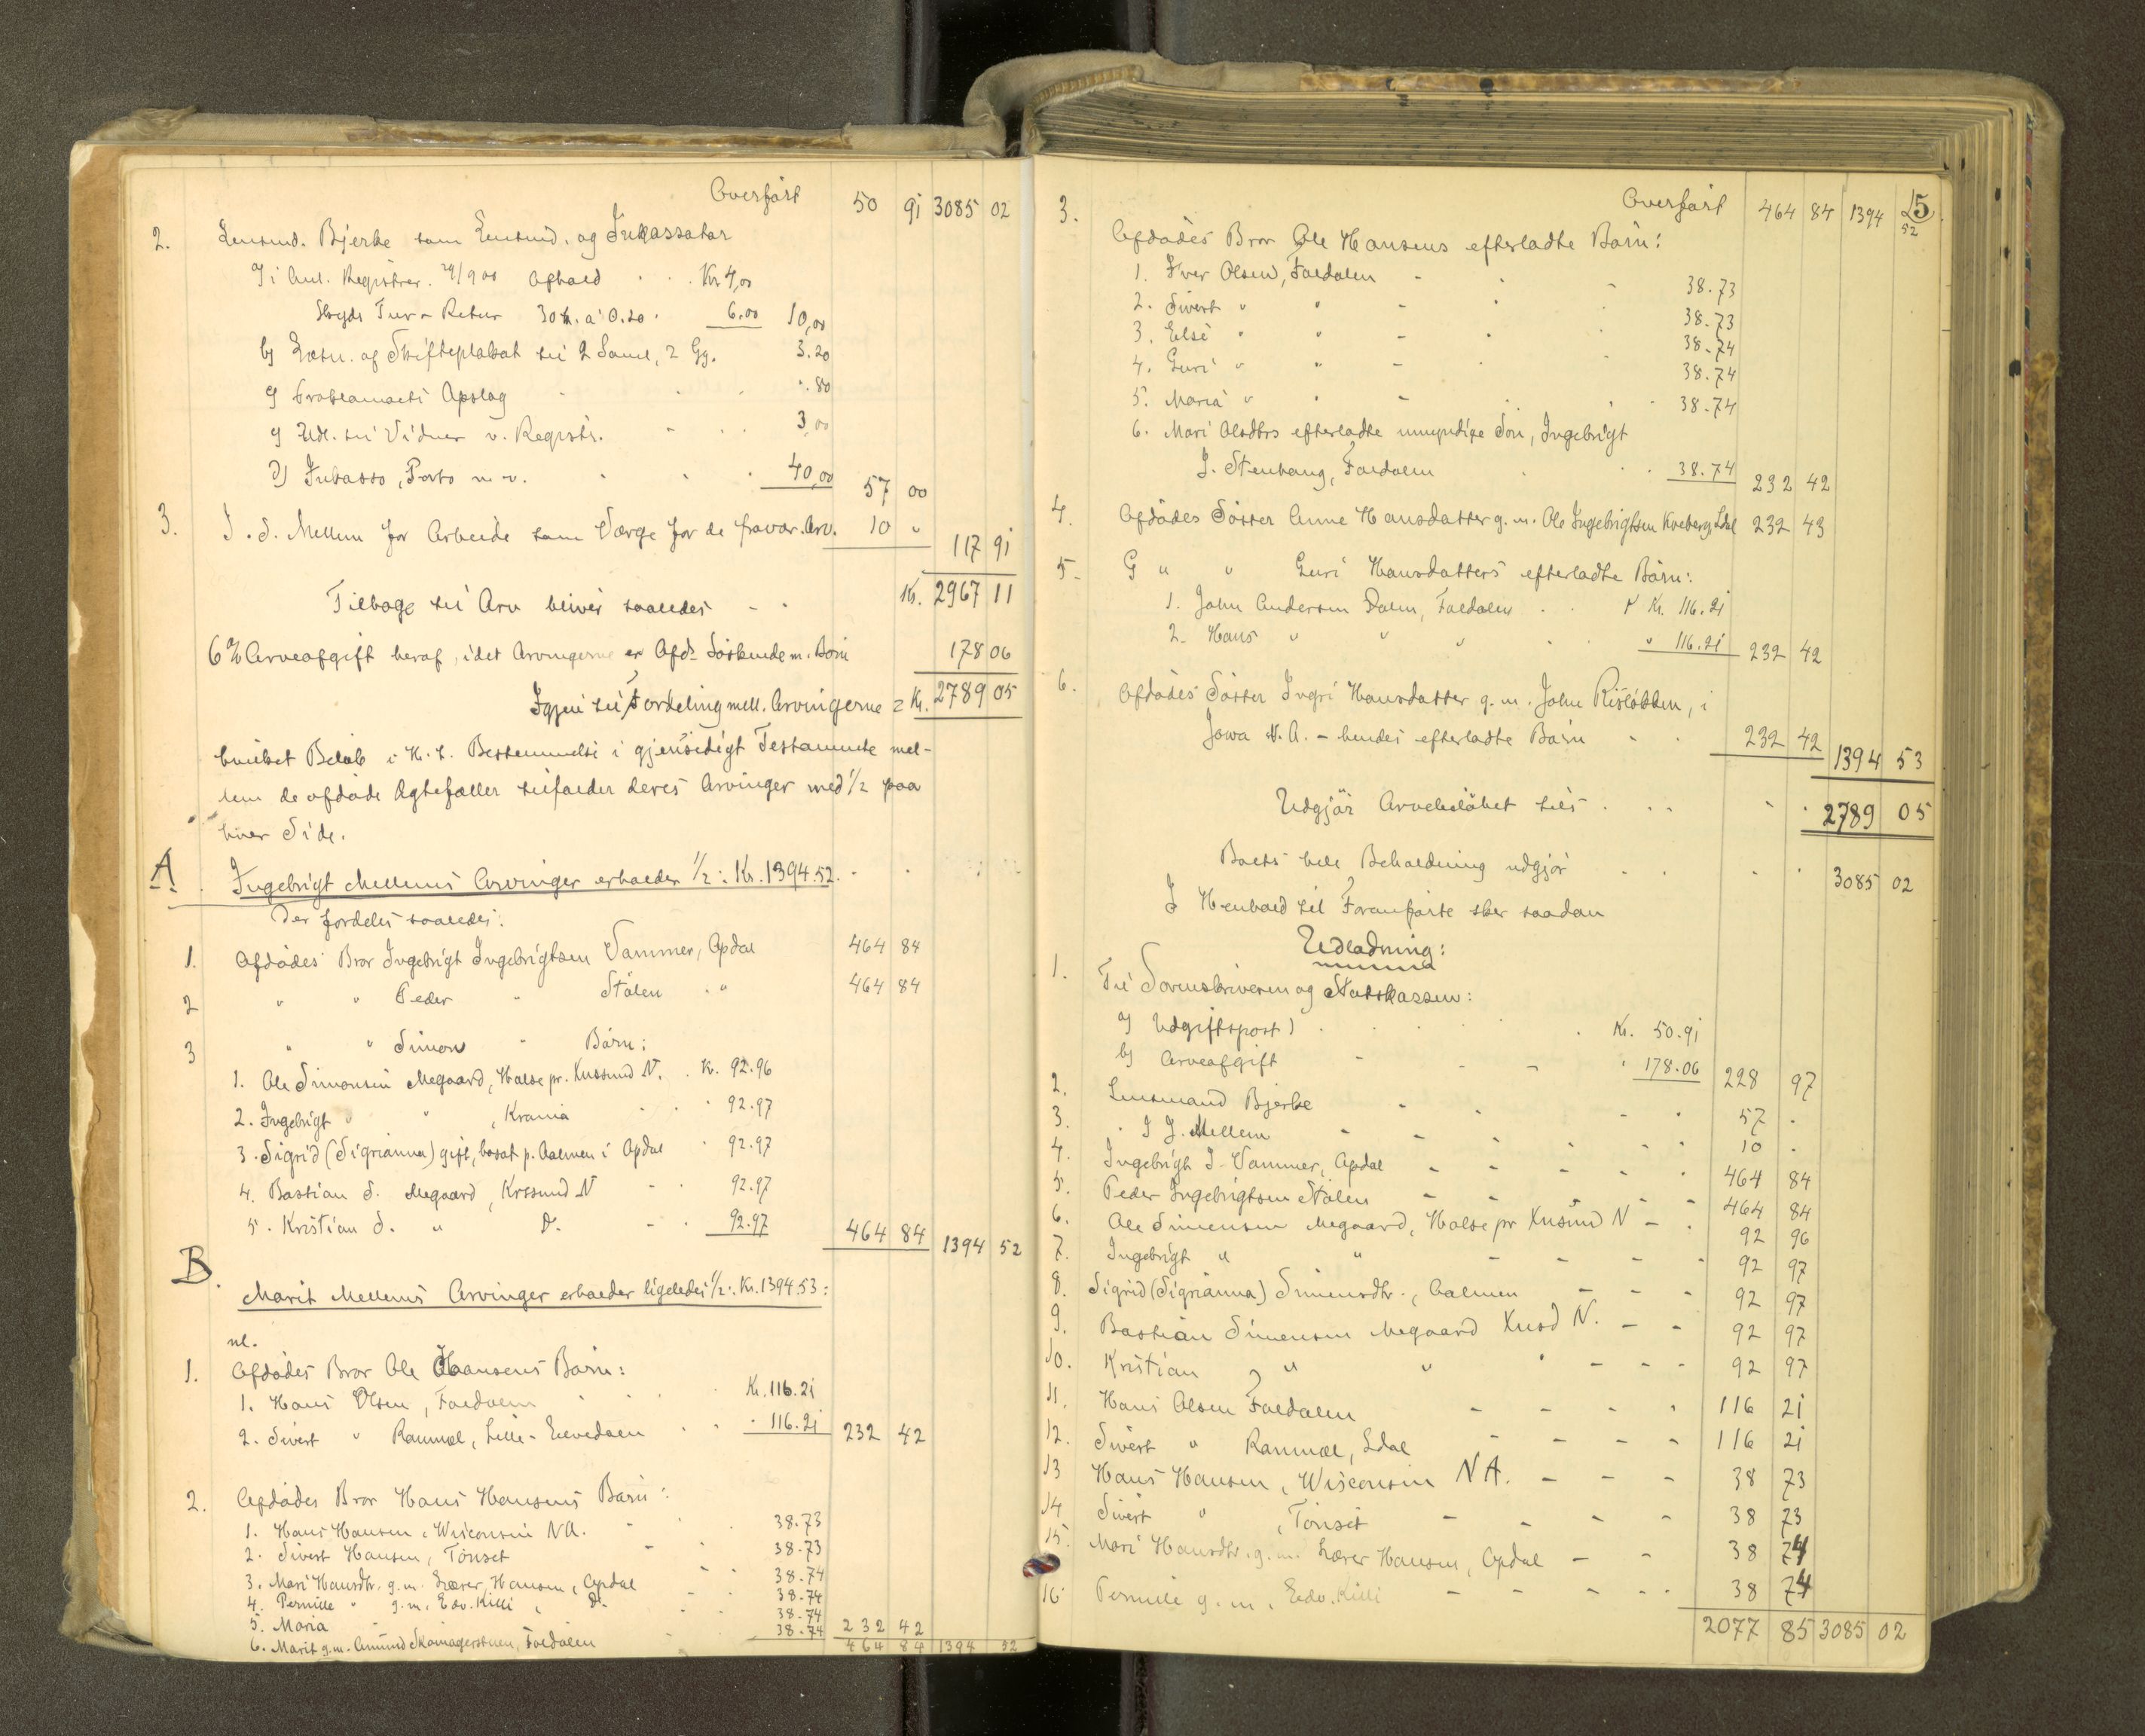 Overført 50 91 3085 02
2. Lensmd. Bjerke som Lensmd. og Inkassator
a) i Anl. Registrer. 29/9 00 Afhold Kr. 4,00
Skyds Tur & Retur 30 k. a 0.20 6.00 10,00
b) og Skifteplakat til 2 Gg. 3.20
c) Proklamaets Opslag .80
Udl. til Vidner v. Registr. 3,00
d) Inkasso, Porto m. v. 40,00 57 00
3. J. S. Mellem for Arbeide som Værge for de fravær. Arv. 10 "
117 91
Tilbage til Arv bliver saaledes - - Kr. 2967 11
6 % Arveafgift heraf, idet Arvingerne er Afds Søskende m. Børn 178 06
Igjen til Fordeling mell. Arvingerne = Kr. 2789 05
hvilket Beløb i H. t. Bestemmelse i gjensidigt Testamente mel-
lem de afdøde Ægtefæller tilfalder deres Arvinger med 1/2 paa
hver Side.
A. Ingebrigt Mellems Arvinger erholder 1/2: Kr. 1394.52.
Der fordeles saaledes:
1. Afdødes Bror Ingebrigt Ingebrigtsen Vammer, Opdal 464 84
2 " " Peder " Stølen " 464 84
3 " " Simon " Børn:
1. Ole Simonsen Megaard, Halse pr. Kr.sund N. Kr. 92.96
2. Ingebrigt " " , Krania 92.97
3. Sigrid (Sigrianna) gift, bosat p. Aalmen i Opdal " 92.97
4. Bastian S. Megaard, Krssund N - 92.97
5. Kristian S. " Do. - 92.97 464 84 1394 52
B. Marit Mellems Arvinger erholder ligeledes 1/2: Kr. 1394.53:
nl.
1. Afdødes Bror Ole Hansens Børn:
1. Hans Olsen, Foldalen Kr. 116.21
2. Sivert " Rammel, Lille-Elvedalen " 116.21 232 42
2. Afdødes Bror Hans Hansens Børn:
1. Hans Hansen, Wisconsin NA. 38.73
2. Sivert Hansen, Tönset 38.73
3. Mari Hansdtr. g. m. Lærer Hansen, Opdal 38.74
4. Pernille " g. m. Edv. Killi, Do. 38.74
5. Maria 38.74
6. Marit g. m. Amund Skomagerstuen, Foldalen 38.74 232 42
464 84 1394 52
15
Overført 464 84 1394 52
3. Afdødes Bror Ole Hansens efterladte Børn:
1. Iver Olsen, Foldalen - 38.73
2. Sivert " " - 38.73
3. Else " " - 38.74
4. Guri " " - 38.74
5. Maria " " - 38.74
6. Mari Olsdtrs efterladte umyndige Søn, Ingebrigt
J. Stenhaug, Foldalen 38.74 232 42
4. Afdødes Søster Anne Hansdatter g. m. Ole Ingebrigtsen Kveberg, Ldal 232 43
5. G " " Guri Hansdatters efterladte Børn:
1. John Andersen Dalen, Foldalen Kr. 116.21
2. Hans " " " " 116.21 232 42
6. Afdødes Søster Ingri Hansdatter g. m. John Risløkken, i
Iowa N. A. - hendes efterladte Børn - 232 42
1394 53
Udgjør Arvebeløbet tils. 2789 05
Boets hele Beholdning udgjør 3085 02
I Henhold til Foranførte sker saadan
Udlodning:
1. Til Sorenskriveren og Statskassen:
a) Udgiftspost 1 Kr. 50.91
b) Arveafgift - " 178.06 228 97
2. Lensmand Bjerke - 57 .
3. J. S. Mellem - 10 .
4. Ingebrigt I. Vammer, Opdal - 464 84
5. Peder Ingebrigtsen Stølen - 464 84
6. Ole Simensen Megaard, Halse pr Krssund N - 92 96
7. Ingebrigt " " - 92 97
8. Sigrid (Sigrianna) Simensdtr., Aalmen - 92 97
9. Bastian Simensen Megaard Krsd N. - 92 97
10. Kristian " " - 92 97
11. Hans Olsen Foldalen - 116 21
12. Sivert " Rammel, Ldal - 116 21
13 Hans Hansen, Wisconsin NA. - 38 73
14 Sivert " , Tönset - 38 73
15. Mari Hansdtr. g. m. Lærer Hansen, Opdal - 38 74
16 Pernille g. m. Edv. Killi - 38 74
2077 85 3085 02